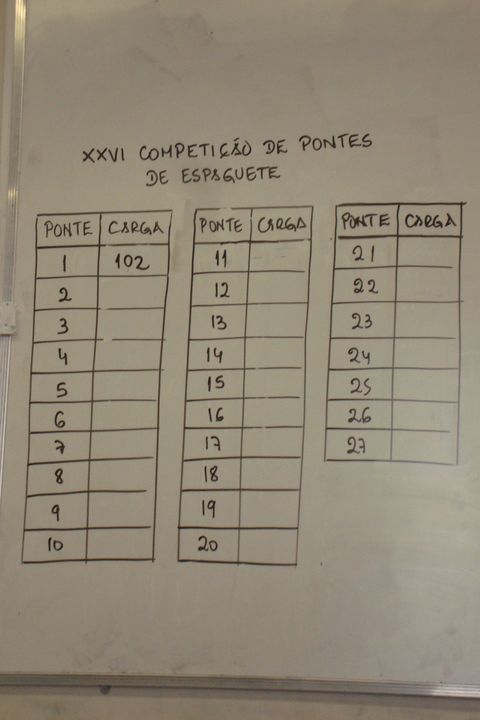 XXVI COMPETIÇÃO DE PONTES
DE ESPAGUETE
PONTE CARGA
1 102
2
3
4
5
6
7
8
9
10
PONTE CARGA
11
12
13
14
15
16
17
18
19
20
PONTE CARGA
21
22
23
24
25
26
27